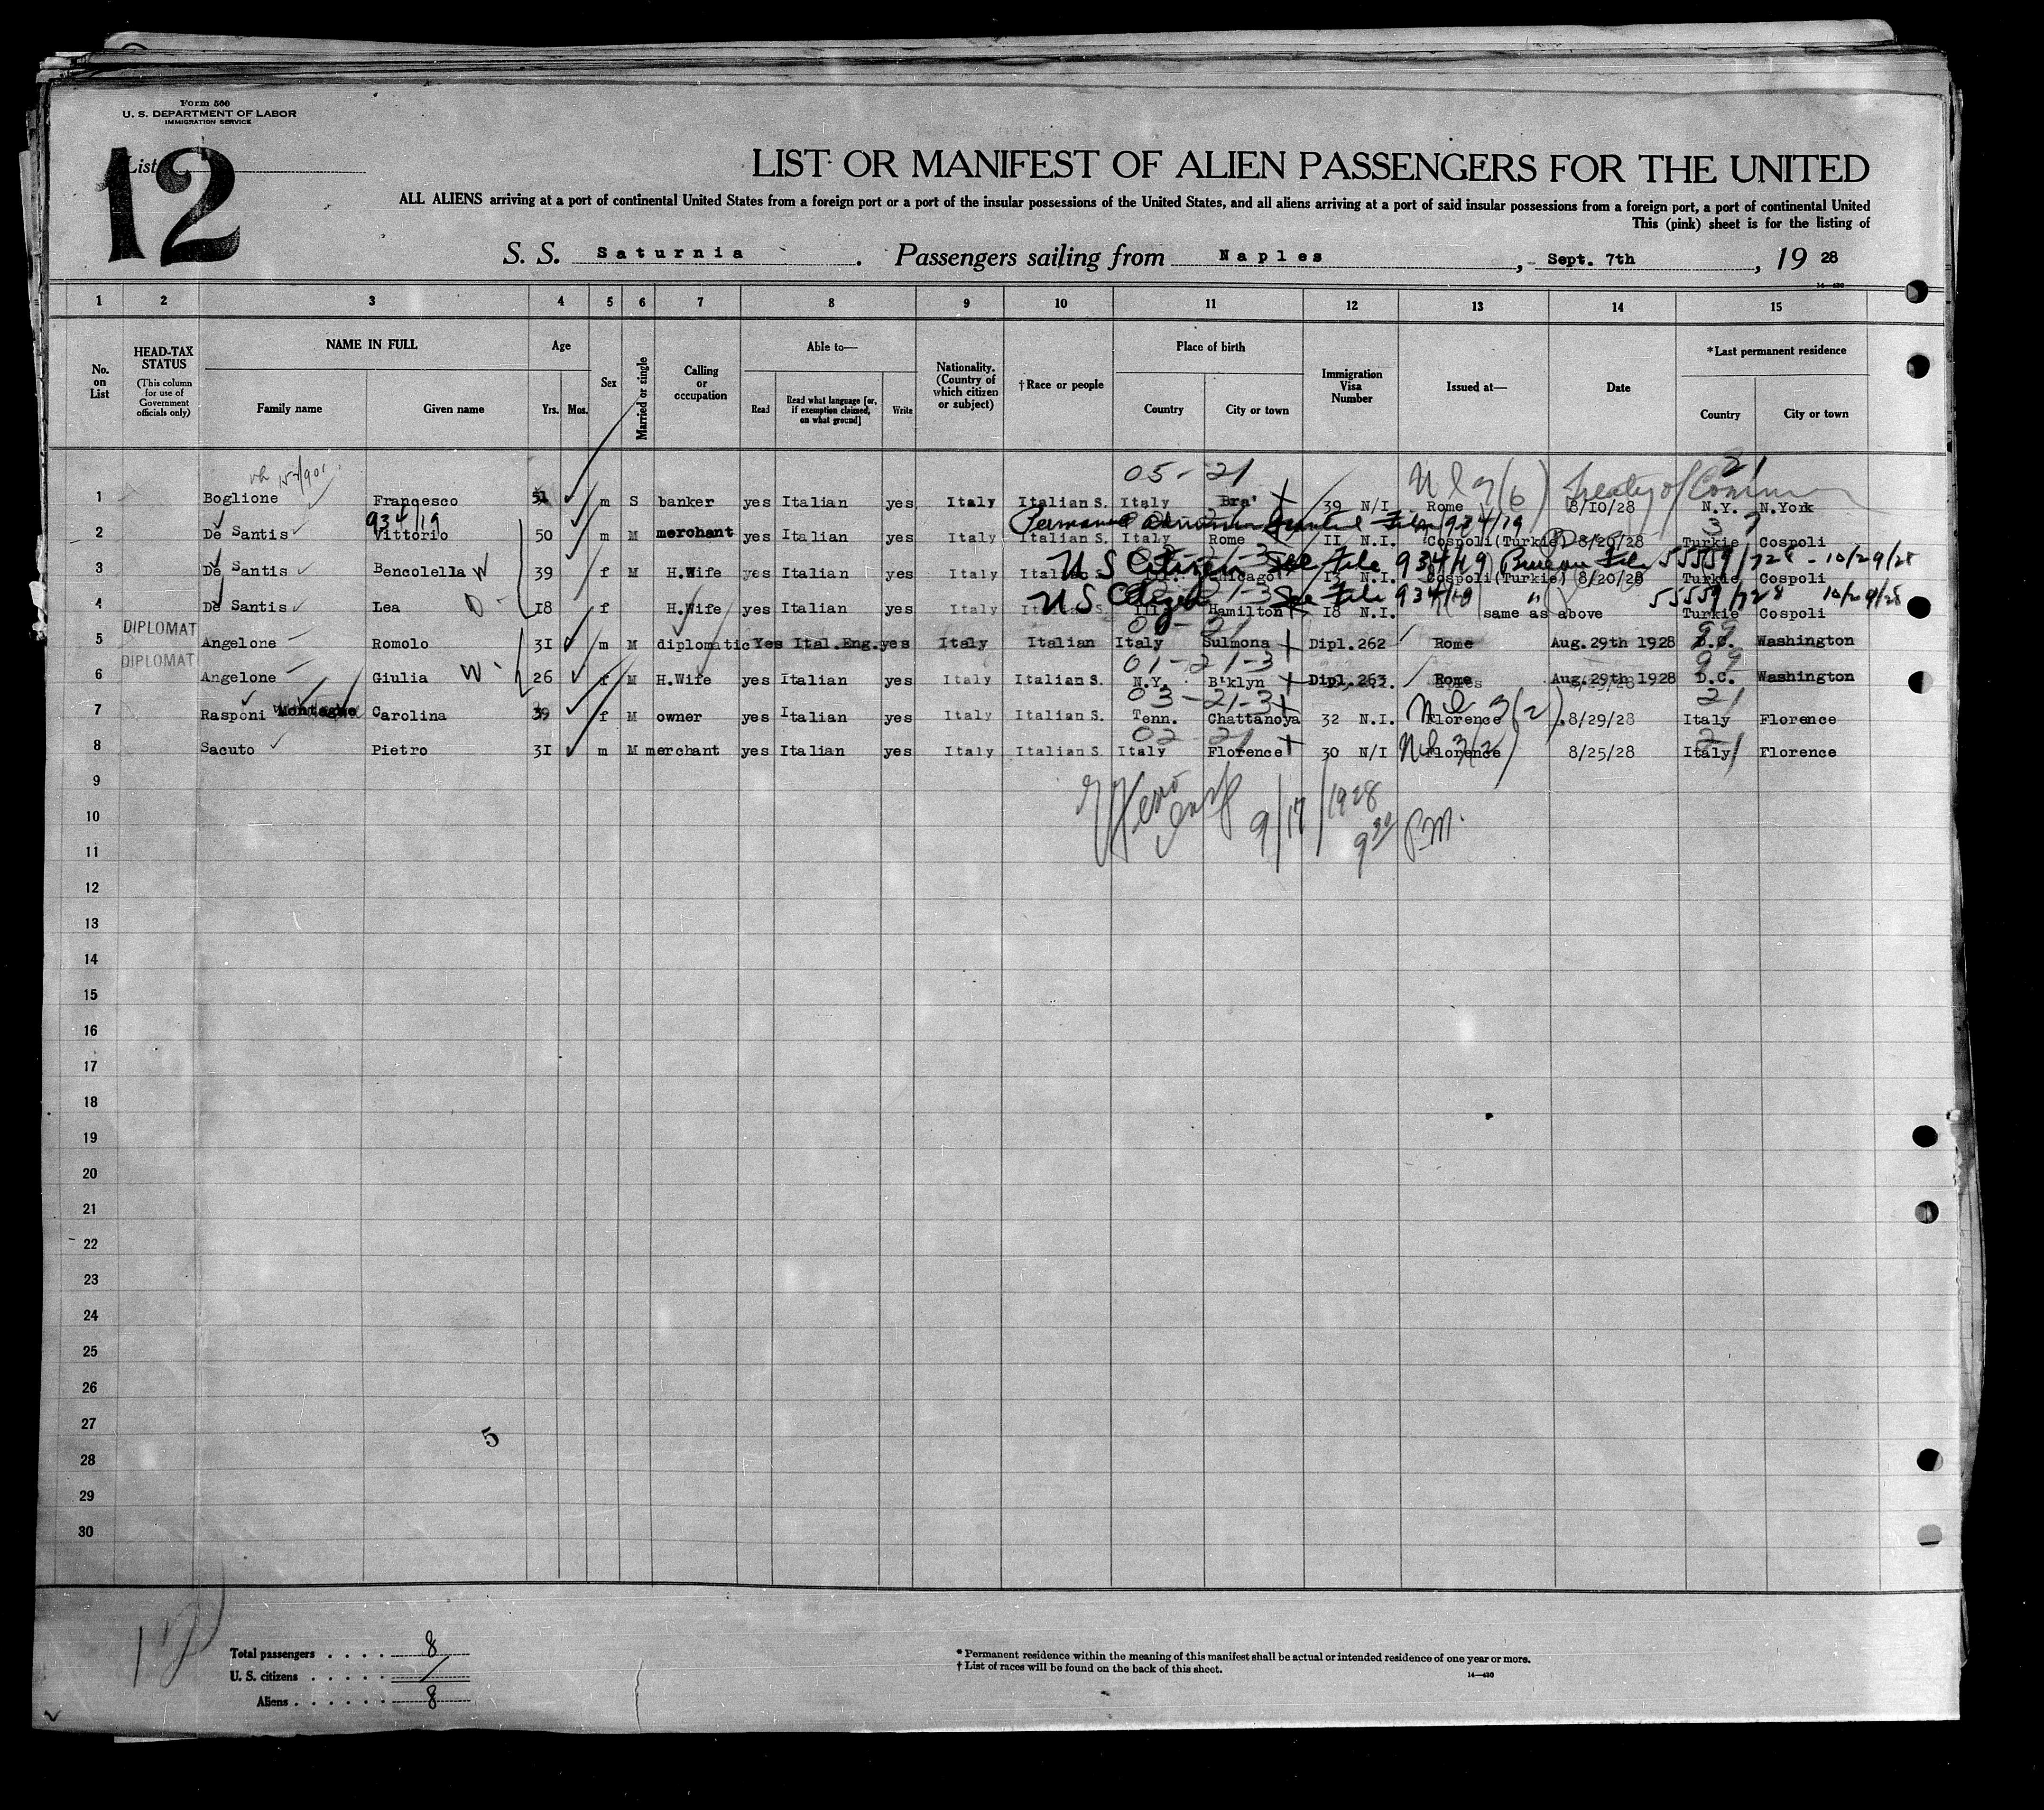 Form 500
U. S. DEPARTMENT OF LABOR
IMMIGRATION SERVICE
List
12
LIST OR MANIFEST OF ALIEN PASSENGERS FOR THE UNITED
ALL ALIENS arriving at a port of continental United States from a foreign port or a port of the insular possessions of the United States, and all aliens arriving at a port of said insular possessions from a foreign port, a port of continental United
This (pink) sheet is for the listing of
S. S. Saturnia. Passengers sailing from Naples, Sept. 7th, 19 28
14—430
1 2 3 4 5 6 7 8 9 10 11 12 13 14 15
No. on List
HEAD-TAX STATUS (This column for use of Government officials only)
NAME IN FULL
Family name Given name
Age
Yrs. Mos.
Sex
Married or single
Calling or occupation
Able to—
Read Read what language [or, if exemption claimed, on what ground] Write
Nationality. (Country of which citizen or subject)
†Race or people
Place of birth
Country City or town
Immigration Visa Number
Issued at—
Date
*Last permanent residence
Country City or town
05-21 21
1 Boglione Francesco 51 m S banker yes Italian yes Italy Italian S. Italy Bra' 39 N/I Rome 8/10/28 N.Y. N.York
Treaty of
934/19 Permanent Admission Granted File 934/19
2 De Santis Vittorio 50 m M merchant yes Italian yes Italy Italian S. Italy Rome II N.I. Cospoli(Turkie) 8/20/28 Turkie Cospoli
US Citizen See File 934/19 Bureau File 55559/728 - 10/29/28
3 De Santis Bencolella W 39 f M H.Wife yes Italian yes Italy Italian S. Ill. Chicago 13 N.I. Cospoli(Turkie) 8/20/28 Turkie Cospoli
US Citizen See File 934/19 " 55559/728 10/29/28
4 De Santis Lea D 18 f H.Wife yes Italian yes Italy Italian S. Ill. Hamilton 18 N.I. same as above Turkie Cospoli
5 DIPLOMAT Angelone Romolo 31 m M diplomatic Yes Ital.Eng. yes Italy Italian Italy Sulmona Dipl.262 Rome Aug.29th 1928 D.C. Washington
01-21-3 99
6 DIPLOMAT Angelone Giulia W 26 f M H.Wife yes Italian yes Italy Italian S. N.Y. B'klyn Dipl.263 Rome Aug.29th 1928 D.C. Washington
03-21-3 21
7 Rasponi Montague Carolina 39 f M owner yes Italian yes Italy Italian S. Tenn. Chattanoya 32 N.I. Florence 8/29/28 Italy Florence
02 21 21
8 Sacuto Pietro 31 m M merchant yes Italian yes Italy Italian S. Italy Florence 30 N/I Florence 8/25/28 Italy Florence
9
9/17/1928
10
9 30 P.M.
11
12
13
14
15
16
17
18
19
20
21
22
23
24
25
26
27
5
28
29
30
Total passengers . . . . 8
U. S. citizens . . . . . /
Aliens . . . . . . 8
* Permanent residence within the meaning of this manifest shall be actual or intended residence of one year or more.
† List of races will be found on the back of this sheet.
14—430